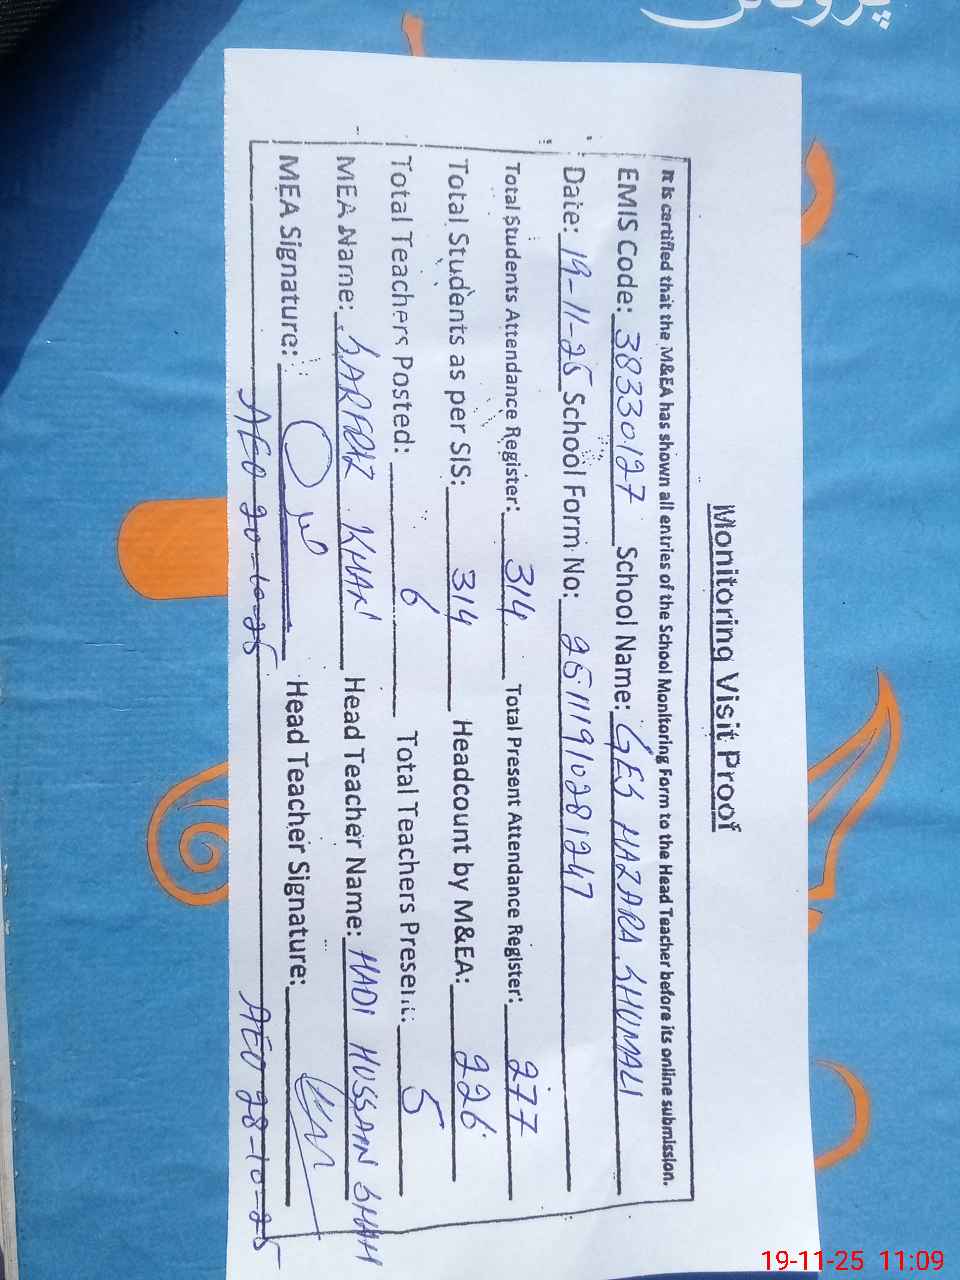 Monitoring Visit Proof
It is certified that the M&EA has shown all entries of the School Monitoring Form to the Head Teacher before its online submission.
EMIS Code: 38330127 School Name: GES HAZARA SHUMALI
Date: 19-11-25 School Form No: 25111910281247
Total Students Attendance Register: 314 Total Present Attendance Register: 277
Total Students as per SIS: 314 Headcount by M&EA: 226
Total Teachers Posted: 6 Total Teachers Present: 5
MEA Name: SARFRAZ KHAN Head Teacher Name: HADI HUSSAIN SHAH
MEA Signature: Head Teacher Signature:
AEO 20-10-25 AEO 28-10-25
19-11-25 11:09